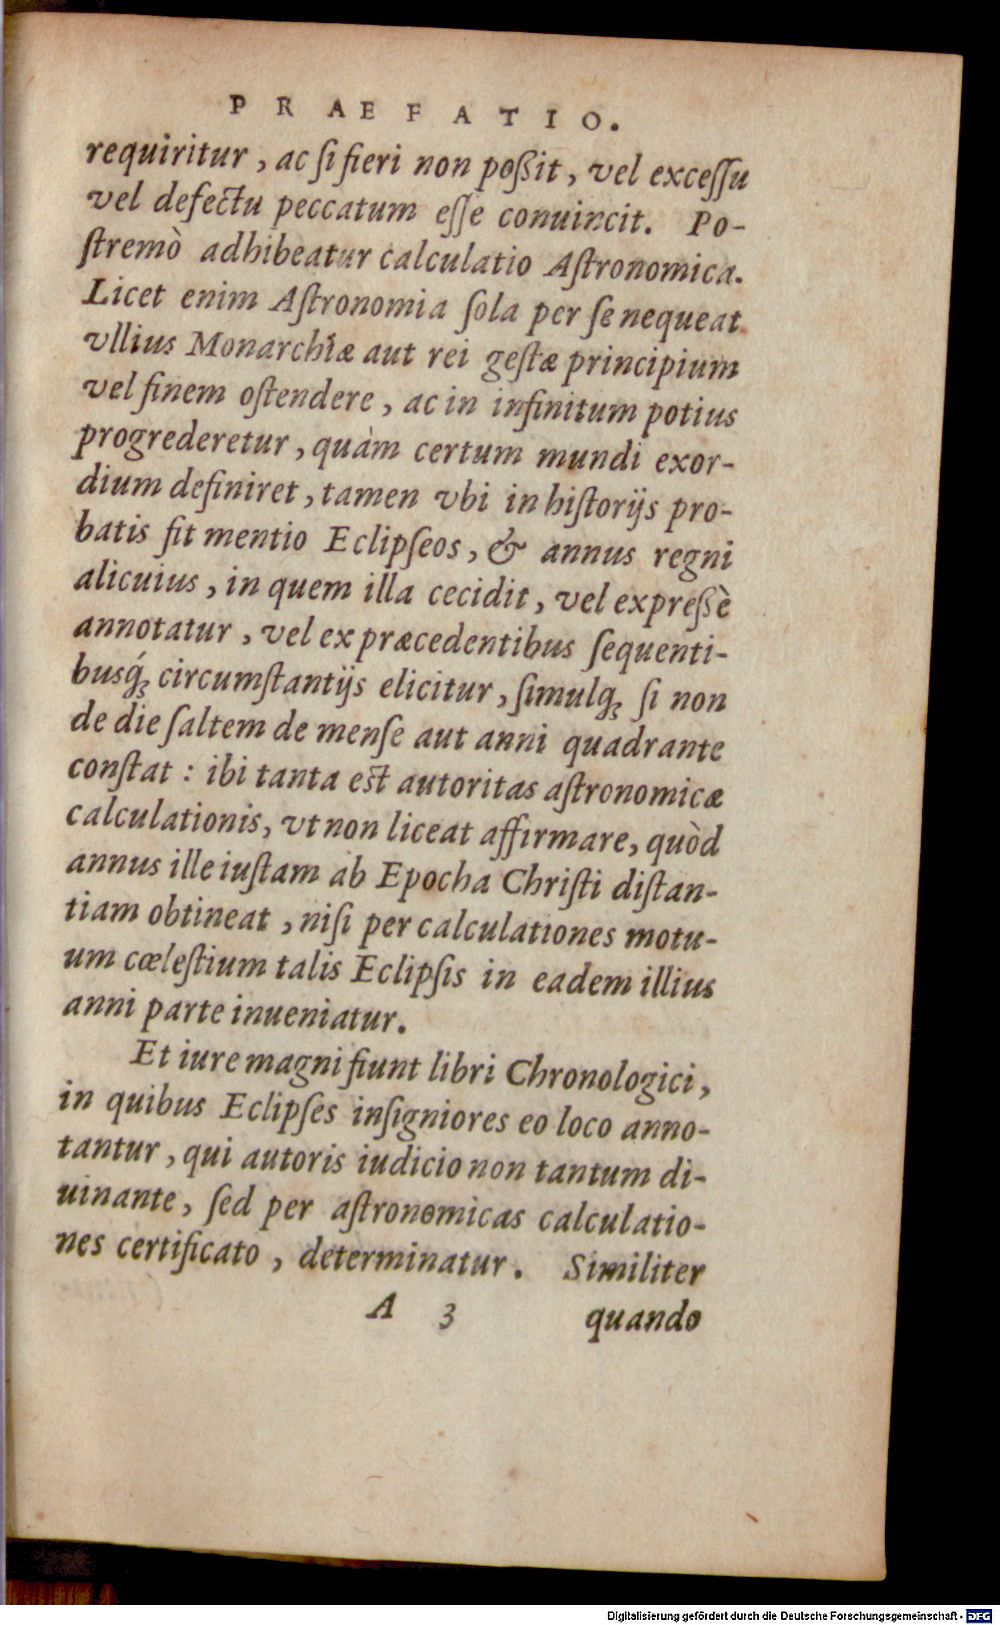 PRAEFATIO.
requiritur, ac ſi fieri non poßit, vel exceſſu
vel defectu peccatum eſſe conuincit. Po-
ſtremò adhibeatur calculatio Aſtronomica.
Licet enim Aſtronomia ſola per ſe nequeat
vllius Monarchiæ aut rei geſtæ principium
vel finem oſtendere, ac in infinitum potius
progrederetur, quàm certum mundi exor-
dium definiret, tamen vbi in hiſtorijs pro-
batis fit mentio Eclipſeos, & annus regni
alicuius, in quem illa cecidit, vel expreßè
annotatur, vel ex præcedentibus ſequenti-
busq́ꝫ circumſtantijs elicitur, ſimulqꝫ ſi non
de die ſaltem de menſe aut anni quadrante
conſtat: ibi tanta est autoritas aſtronomicæ
calculationis, vt non liceat affirmare, quòd
annus ille iuſtam ab Epocha Chriſti diſtan-
tiam obtineat, niſi per calculationes motu-
um cœleſtium talis Eclipſis in eadem illius
anni parte inueniatur.
Et iure magni fiunt libri Chronologici,
in quibus Eclipſes inſigniores eo loco anno-
tantur, qui autoris iudicio non tantum di-
uinante, ſed per aſtronomicas calculatio-
nes certificato, determinatur. Similiter
A 3 quando
Digitalisierung gefördert durch die Deutsche Forschungsgemeinschaft - DFG